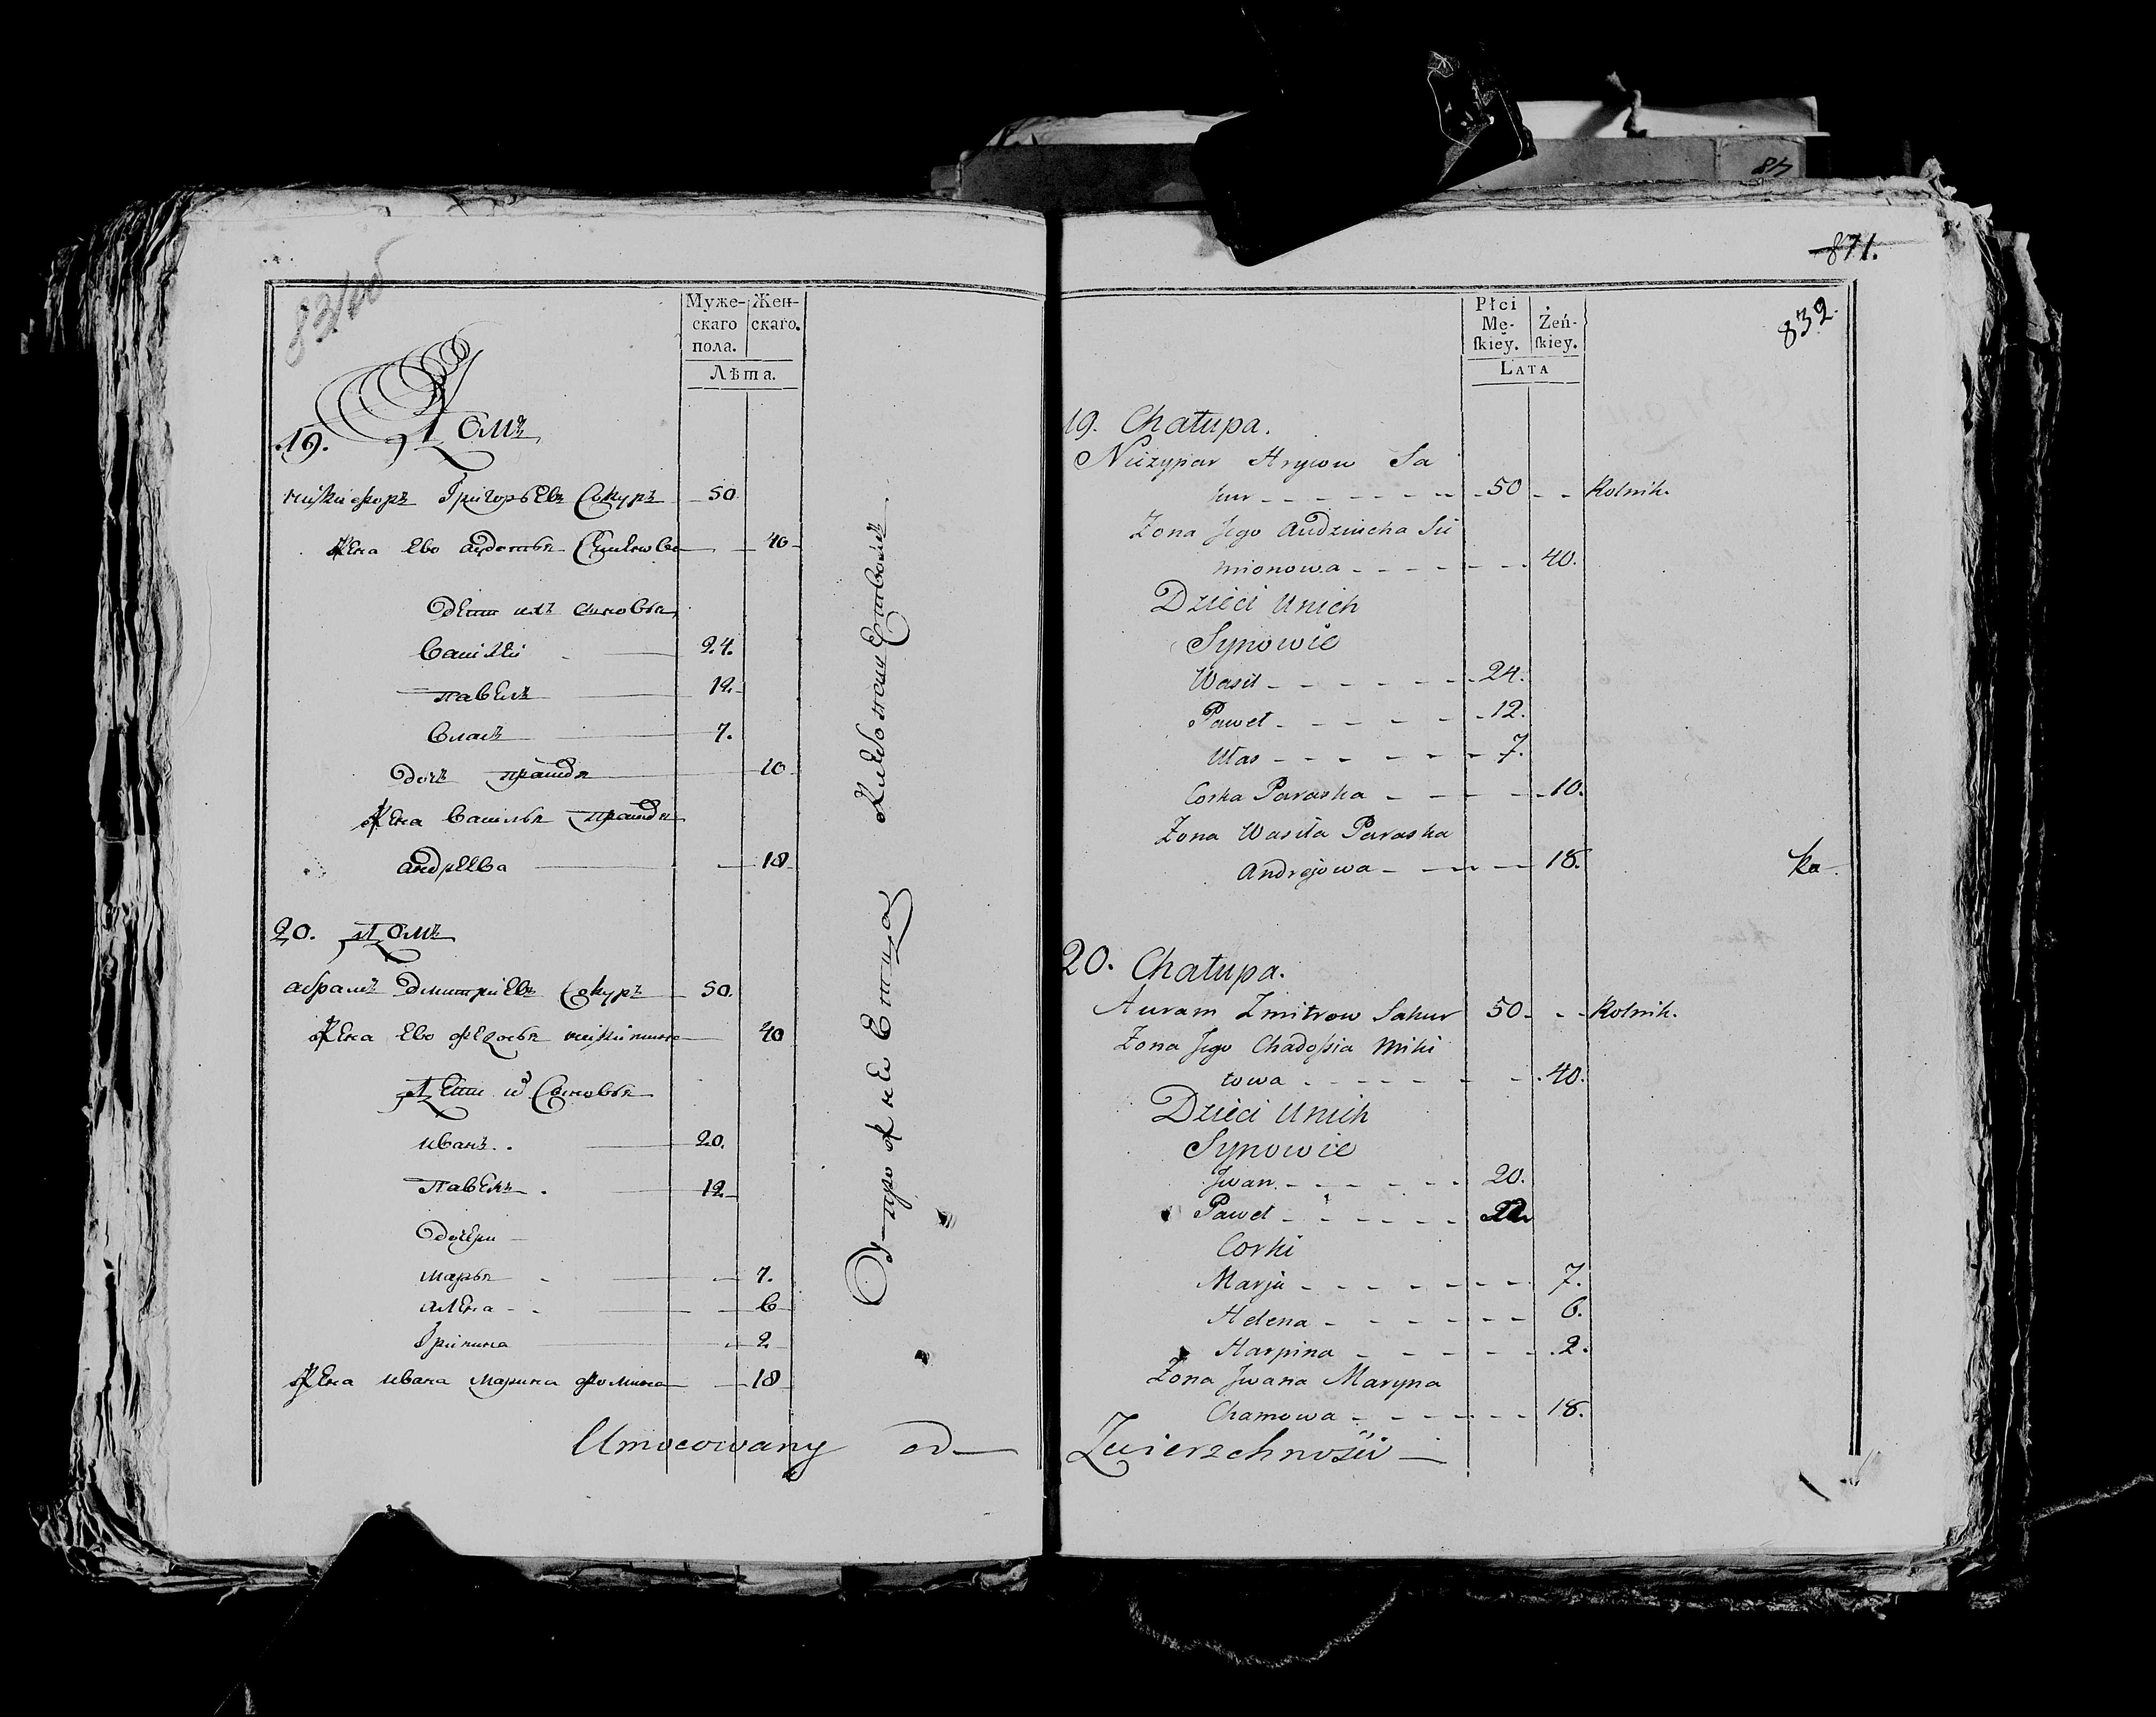 831об
Муже-
скаго
пола.
Жен-
скаго.
Лѣта.
19. Домъ
никифоръ Григорьевъ Сокуръ 50.
жена ево авдотья Семенова 40
дети ихъ сыновья
василей 24.
павелъ 12.
власъ 7.
дочь прасидя 10
жена василья прасидя
андреева 18
20. Домъ
абрамъ дмитриевъ Сокуръ 50.
жена ево федосья никитина 40
Дети их Сыновья
иванъ. 20.
Павелъ. 12
дочери
марья 7.
алена 6
Грипина 2
жена ивана марина фомина 18
Umocowany od
48
871.
832.
Płci
Mę-
ſkiey.
Żeń-
ſkiey.
LATA
19. Chałupa.
Niczypar Hryow Sa
kur 50 Rolnik.
Zona Jego Audziucha Si
mionowa 40.
Dzieci Unich
Synowie
Wasil 24.
Paweł 12.
Ułas 7.
Corka Paraska 10.
Zona Wasila Paraska
Andrejowa 18.
ka
20. Chałupa.
Auram Zmitrow Sakur 50. Rolnik.
Zona Jego Chadoſsia Miki
towa 40.
Dzieci Unich
Synowie
Jwan 20.
Paweł
Corki
Marja 7.
Helena 6.
Harpina 2.
Zona Jwana Maryna
Chamowa 18.
Zwierzchności